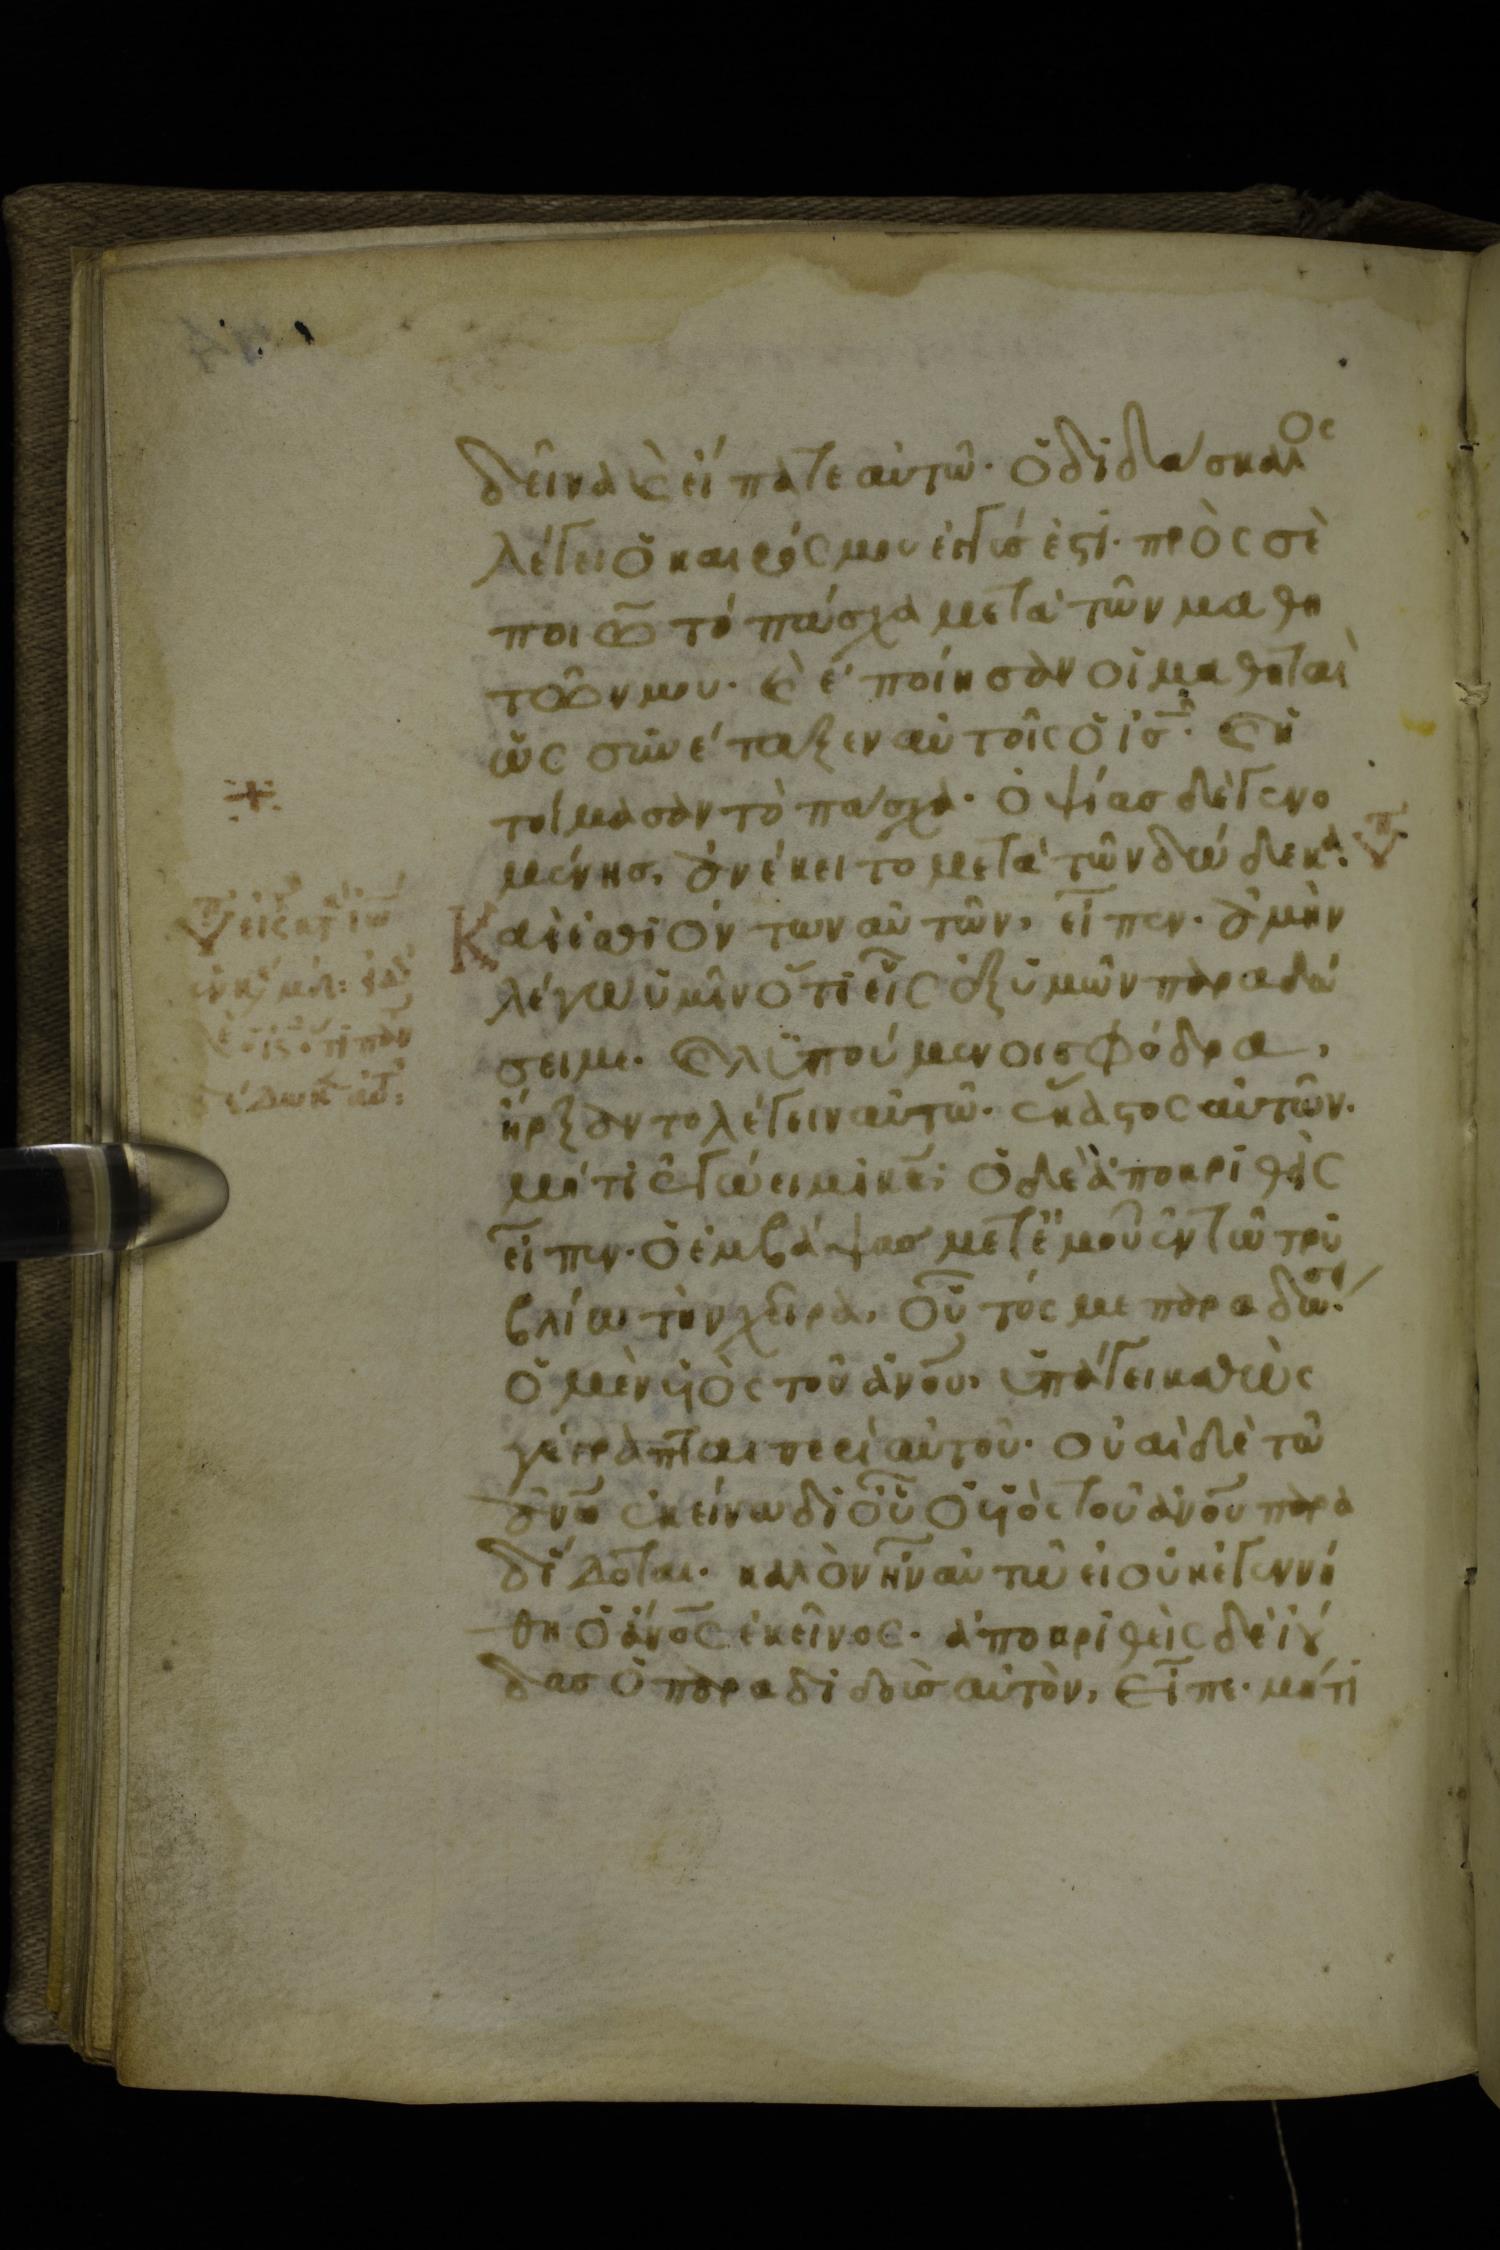 δεῖνα (καὶ) εἴπατε αὐτῶ· ὁ διδάσκαλος
λέγει ὁ καιρός μου ἐγγύσ ἐστι· πρὸς σὲ
ποιῶ τὸ πάσχα μετὰ τῶν μαθη
τῶν μου· (καὶ) ἐποίησαν οἱ μαθηταὶ
ὡς συνέταξεν αὐτοῖς ὁ ἰσ̅· (καὶ) ἡ
τοίμασαν τὸ πάσχα· ὀψίασ δὲ γενο
μένησ, ἀνέκειτο μετὰ τῶν δώδεκα·
Καὶ ἐσθιόντων αὐτῶν, εἶπεν· ἀμὴν
λέγω ὑμῖν ὅτι εἷς ἐξ ὑμῶν παραδώ
σει με· (καὶ) λυπούμενοι σφόδρα,
ἤρξαντο λέγειν αὐτῶ· ἕκαστος αὐτῶν·
μήτι ἐγώ εἰμι κ̅ε̅; ὁ δὲ ἀποκριθεὶς
εἶπεν· ὁ ἐμβάψασ μετ' ἐμοῦ ἐν τῶ τρυ
βλίω τὴν χεῖρα, οὗτός με παραδώσει·
ὁ μὲν υἱὸς τοῦ ἀν̅ο̅υ̅, ὑπάγει καθὼς
γέγραπται περὶ αὐτοῦ· οὐαὶ δὲ τῶ
ἀν̅ω̅ ἐκείνω δι' οὗ ὁ υἱὸς τοῦ ἀν̅ο̅υ̅ παρα
δίδοται· καλὸν ἦν αὐτῶ εἰ οὐκ ἐγεννή
θη ὁ ἄν̅ο̅ς̅ ἐκεῖνος· ἀποκριθεὶς δὲ ἰού
δασ ὁ παραδιδοὺσ αὐτὸν, εἶπε· μήτι